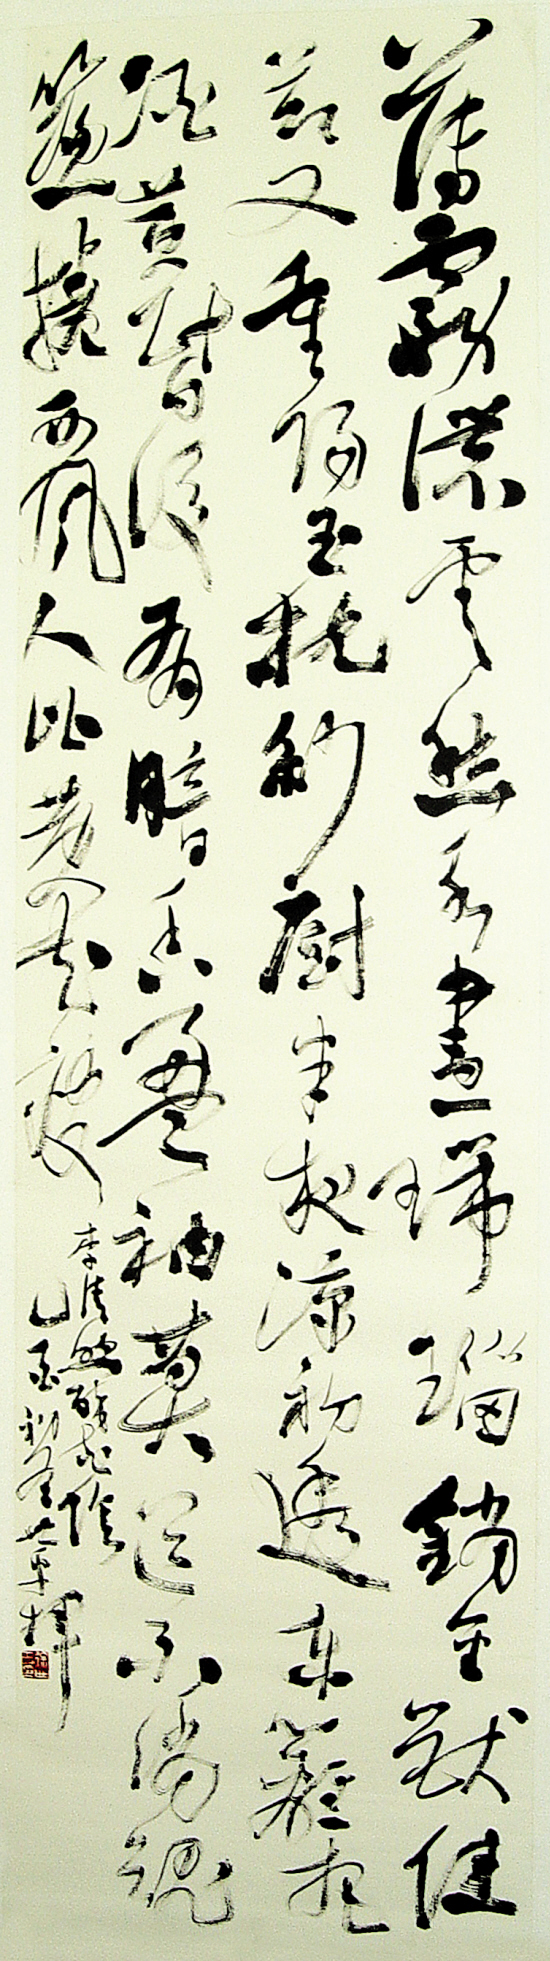 薄霧濃雲愁永晝瑞腦銷金獸佳
節又重陽玉枕紗廚半夜涼初透東籬把
酒黃昏後有暗香盈袖莫道不消魂
簾捲西風人比黃花瘦
李清照醉花陰
乙酉